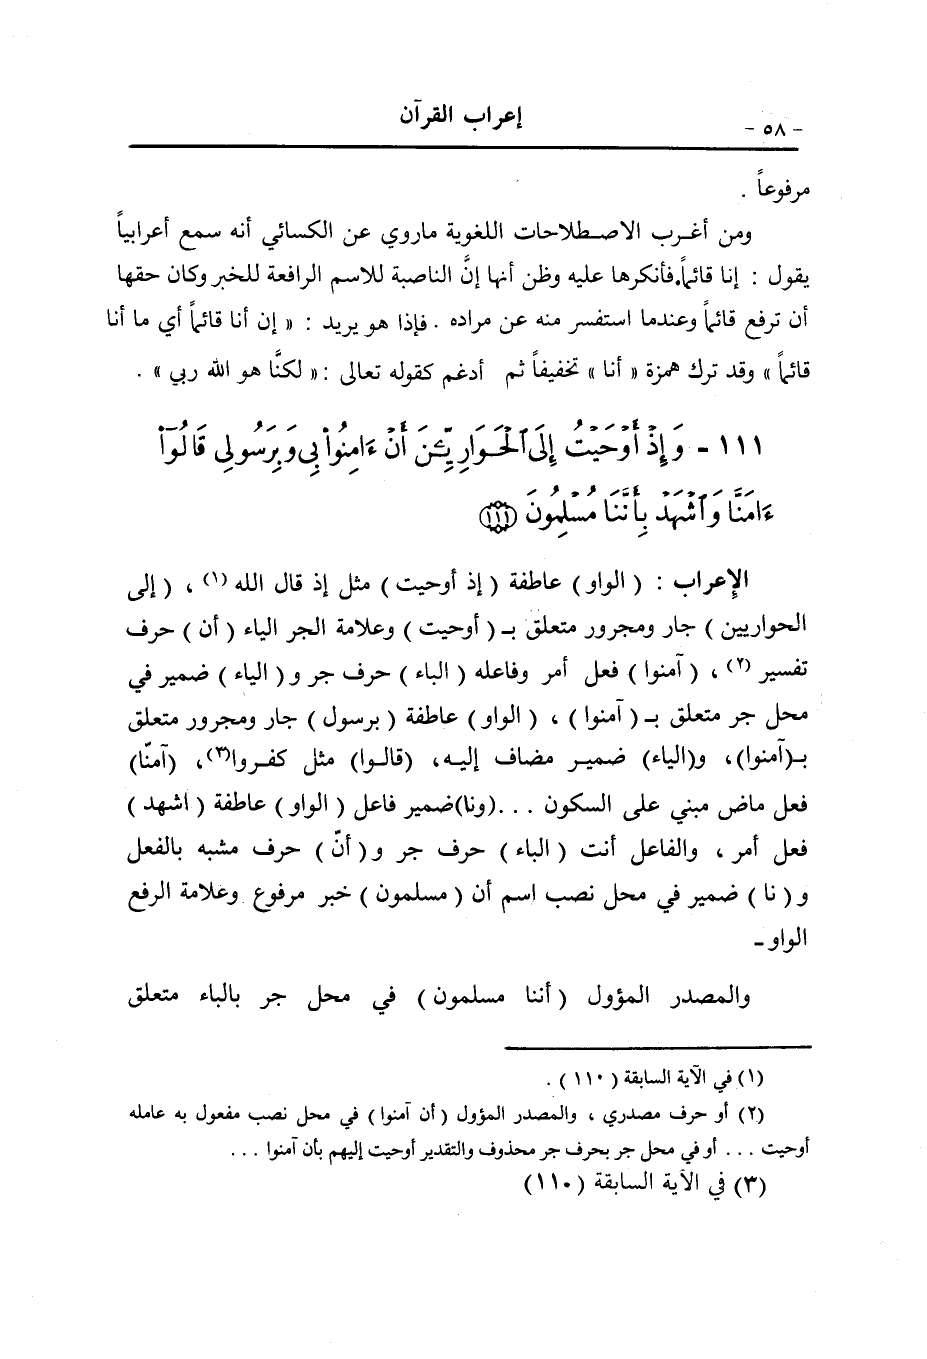 - ٥٨ -
إعراب القرآن
مرفوعاً .
ومن أغرب الاصطلاحات اللغوية ماروي عن الكسائي أنه سمع أعرابياً
يقول : إنا قائماً.فأنكرها عليه وظن أنها إنَّ الناصبة للاسم الرافعة للخبر وكان حقها
أن ترفع قائماً وعندما استفسر منه عن مراده . فإذا هو يريد : « إن أنا قائماً أي ما أنا
قائماً » وقد ترك همزة « أنا » تخفيفاً ثم أدغم كقوله تعالى :« لكنَّا هو الله ربي » .
١١١ - وَإِذْ أَوْحَيْتُ إِلَى ٱلْحَوَارِيِّـۧنَ أَنْ ءَامِنُوا۟ بِى وَبِرَسُولِى قَالُوٓا۟
ءَامَنَّا وَٱشْهَدْ بِأَنَّنَا مُسْلِمُونَ ﴿١١١﴾
الإعراب : ( الواو ) عاطفة ( إذ أوحيت ) مثل إذ قال الله (١) ، ( إلى
الحواريين ) جار ومجرور متعلق بـ ( أوحيت ) وعلامة الجر الياء ( أن ) حرف
تفسير (٢) ، ( آمنوا ) فعل أمر وفاعله ( الباء ) حرف جر و ( الياء ) ضمير في
محل جر متعلق بـ ( آمنوا ) ، ( الواو ) عاطفة ( برسول ) جار ومجرور متعلق
بـ(آمنوا)، و(الياء) ضمير مضاف إليه، (قالوا) مثل كفروا(٣)، (آمنّا)
فعل ماض مبني على السكون . . .(ونا)ضمير فاعل ( الواو ) عاطفة ( اشهد )
فعل أمر ، والفاعل أنت ( الباء ) حرف جر و ( أنّ ) حرف مشبه بالفعل
و ( نا ) ضمير في محل نصب اسم أن ( مسلمون ) خبر مرفوع وعلامة الرفع
الواو-
والمصدر المؤول ( أننا مسلمون ) في محل جر بالباء متعلق
(١) في الآية السابقة ( ١١٠ ) .
(٢) أو حرف مصدري ، والمصدر المؤول ( أن آمنوا ) في محل نصب مفعول به عامله
أوحيت . . . أو في محل جر بحرف جر محذوف والتقدير أوحيت إليهم بأن آمنوا . . .
(٣) في الآية السابقة (١١٠)